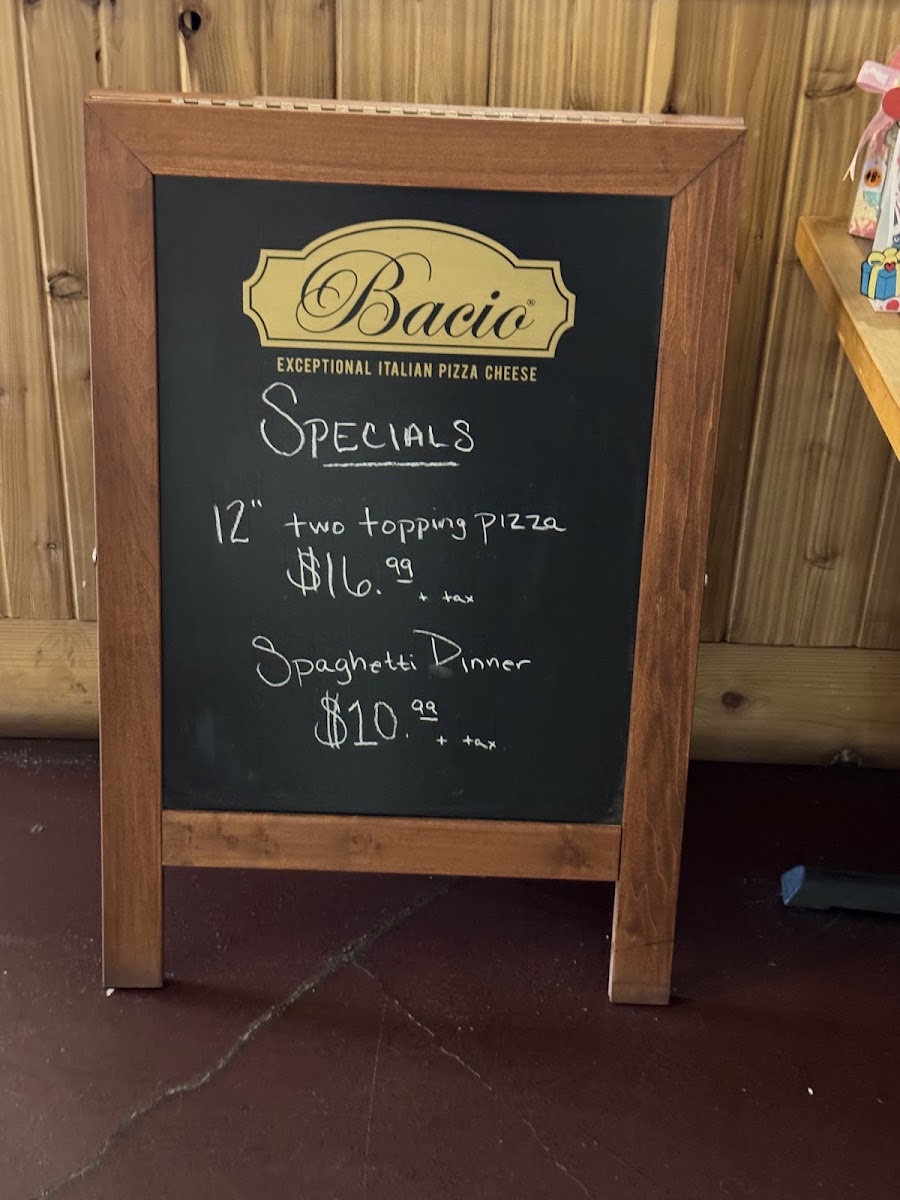 Bacio®
EXCEPTIONAL ITALIAN PIZZA CHEESE
SPECIALS
12" two topping pizza
$16.99 + tax
Spaghetti Dinner
$10.99 + tax